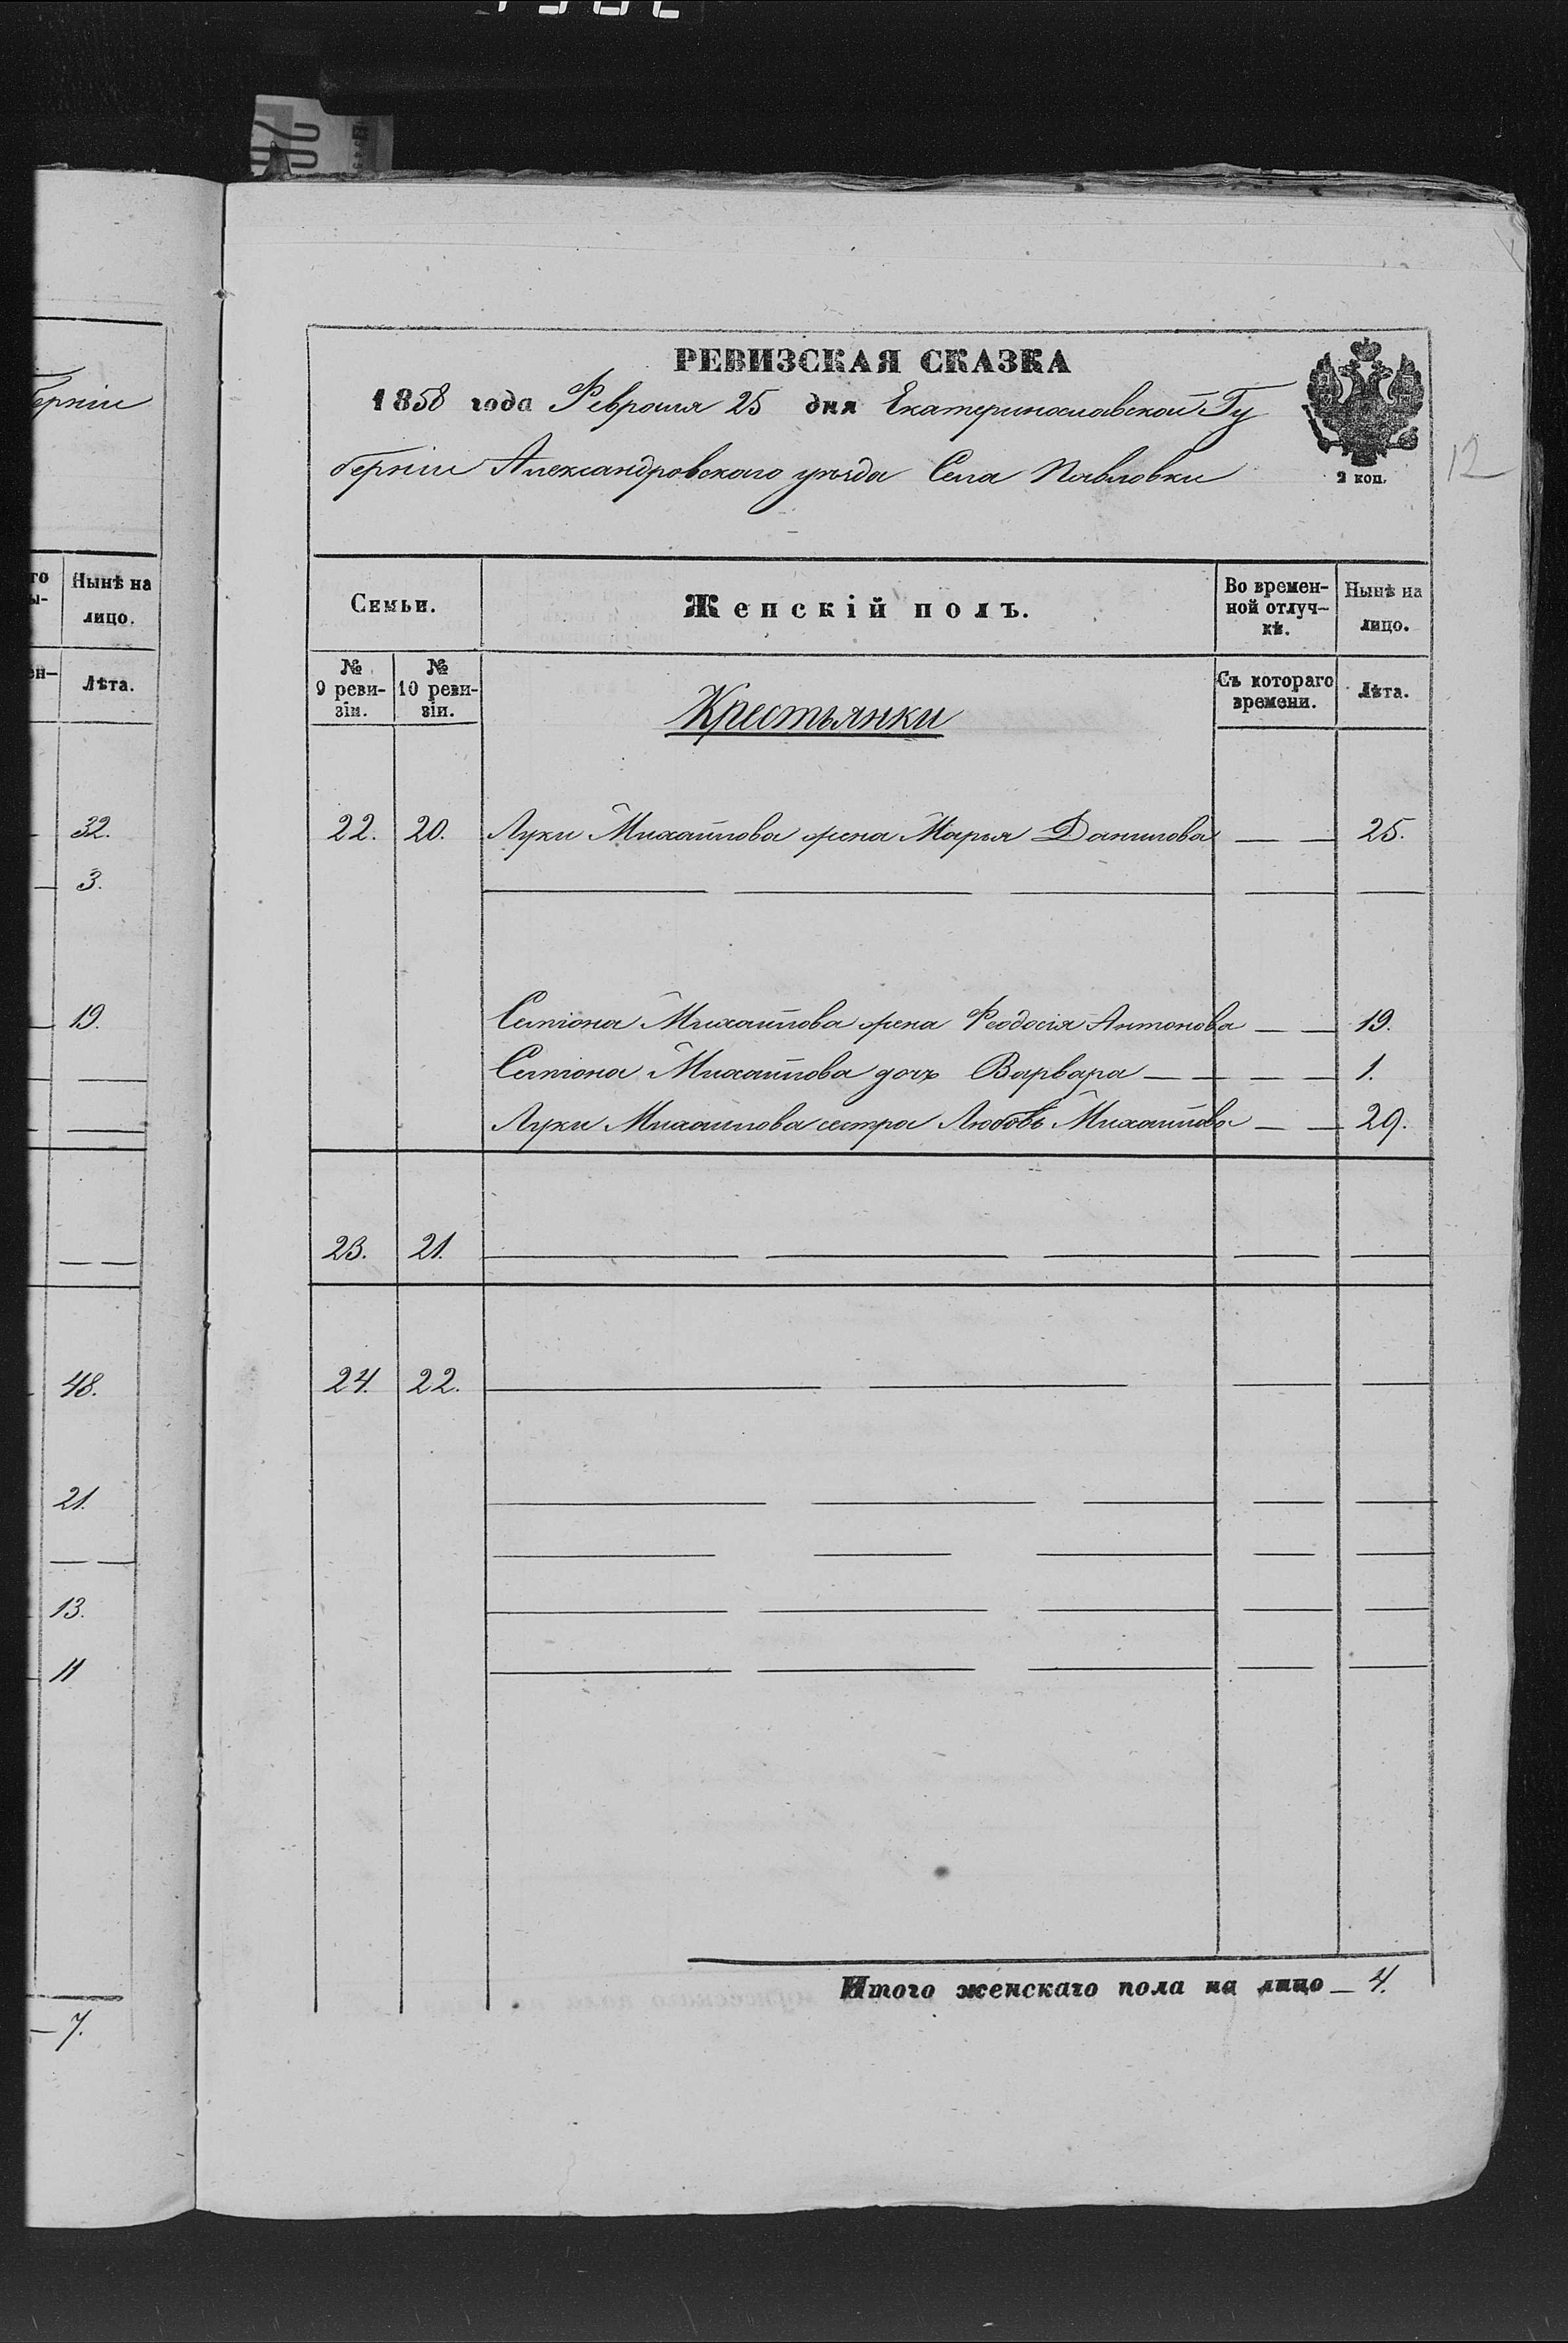 ерніи
го
ы-
Нынѣ на
лицо.
ен-
Лѣта.
32.
3.
19.
48.
21.
13.
11
7.
РЕВИЗСКАЯ СКАЗКА
1858 года Февраля 25 дня Екатеринославской Гу
берніи Александровскаго уѣзда Села Павловки
2 коп.
12
Семьи.
Женскій полъ.
Во времен-
ной отлуч-
кѣ.
Нынѣ на
лицо.
№
9 реви-
зіи.
№
10 реви-
зіи.
Крестьянки
Съ котораго
времени.
Лѣта.
22. 20. Луки Михайлова жена Марья Данилова — — 25.
Семіона Михайлова жена Феодосія Антонова — — 19.
Семіона Михайлова дочь Варвара — — — — 1.
Луки Михайлова сестра Любовь Михайлова — — 29.
23. 21.
24. 22.
Итого женскаго пола на лицо — 4.